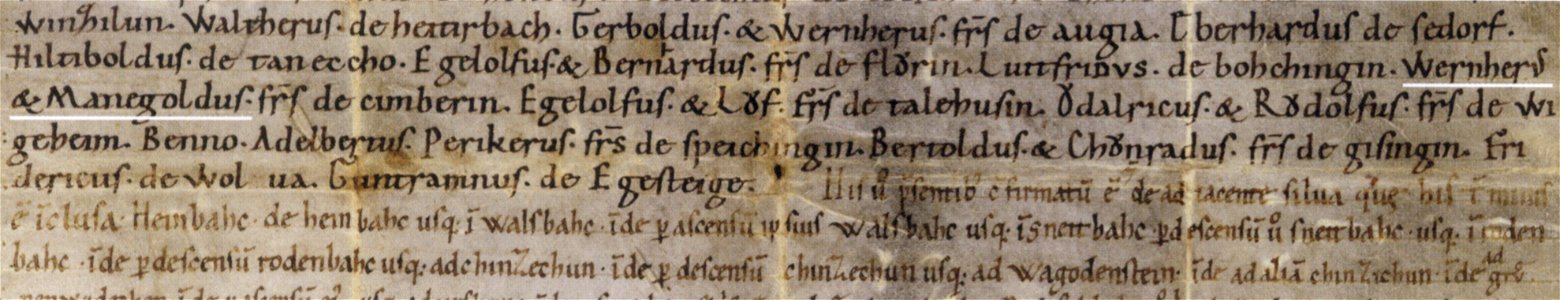 winzhilun. Waltherus. de heitirbach. Gerboldus. & Wernherus. fr̄s de augia. Eberhardus de sedorf.
Hiltiboldus. de taneccho. Egelolfus. & Bernardus. fr̄s de flǒrin. Luitfridus. de bohchingin. Wernherus
& Manegoldus. fr̄s de cimberin. Egelolfus. & Lǒf. fr̄s de talehusin. Ǒdalricus. & Rǒdolfus. fr̄s de wi
geheim. Benno. Adelbertus. Perikerus. fr̄s de speichingin. Bertoldus. & Chǒnradus. fr̄s de gisingin. Fri
dericus. de wol ua. Guntramnus. de Egesteige. His ů p̄sentib; c̄firmatū ē de adiacente silua quę his ī
ē īclusa. Heinbahc. de heinbahc usq. ī walsbahc. īde p ascensū ipsius walsbahc usq. ī snettbahc. p descensū ů snettbahc. usq. ī roden
bahc. īde p descensū rodenbahc usq. ad chinzechun. īde p descensū chinzechun usq. ad wagodenstein. īde ad aliā chinzichun. īde ad